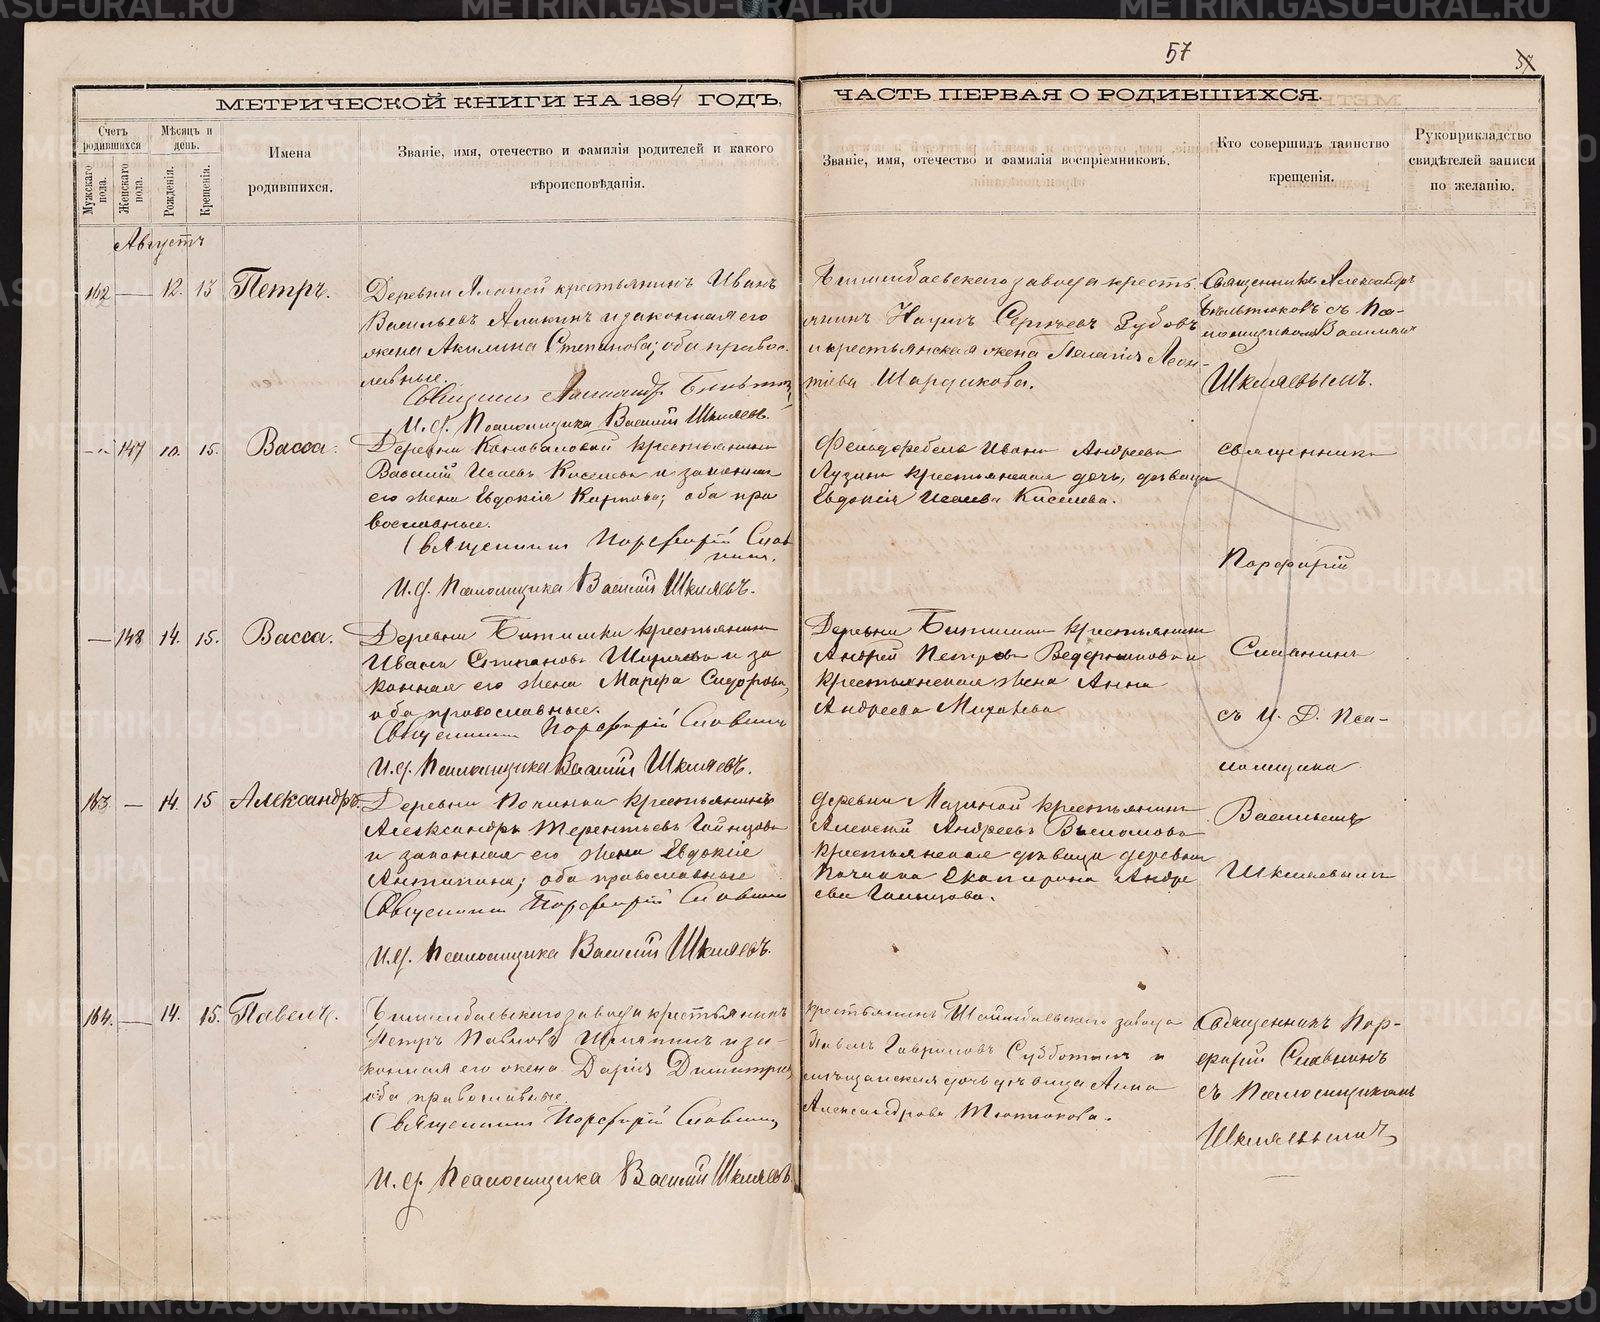 57
МЕТРИЧЕСКОЙ КНИГИ НА 1884 ГОДЪ,
ЧАСТЬ ПЕРВАЯ О РОДИВШИХСЯ.
Счетъ родившихся
Мужскаго пола.
Женскаго пола.
Мѣсяцъ и день.
Рожденія.
Крещенія.
Имена
родившихся.
Званіе, имя, отечество и фамилія родителей и какого
вѣроисповѣданія.
Званіе, имя, отечество и фамилія воспріемниковъ.
Кто совершилъ таинство
крещенія.
Рукоприкладство
свидѣтелей записи
по желанію.
Августъ
162 — 12. 13 Петръ.
крестьянинъ Иванъ
Васильевъ и законная его
жена Акилина Степанова; оба правос-
лавные.
Священникъ Александръ
И. д. Псаломщика Василій Шкляевъ.
завода кресть-
янинъ Наумъ Сергѣевъ Зубовъ
и крестьянская жена Пелагія Леон-
тіева
Священникъ Александръ
съ Пса-
ломщикомъ Василіем
Шкляевымъ.
147 10. 15. Васса.
Деревни Коноваловой крестьянинъ
Василій Исаевъ Киселевъ и законная
его жена Евдокія Карпова; оба пра
вославные.
Священникъ Порфирій Слав
нинъ.
И. д. Псаломщика Василій Шкляевъ.
Фельдфебель Иванъ Андреевъ
Лузинъ крестьянская дочь, дѣвица
Евдокія Исаева Киселева.
священникъ
Порфирій
— 148 14. 15. Васса.
Деревни Битимки крестьянинъ
Иванъ Степановъ и за
конная его жена Марфа Сидорова,
оба православные.
Священникъ Порфирій Славнинъ
И. д. Псаломщика Василій Шкляевъ.
Деревни Битимки крестьянинъ
Андрей Петровъ Ведерниковъ и
крестьянская жена Анна
Андреева
Славнинъ
съ И. Д. Пса-
ломщика
163 — 14. 15 Александръ.
Деревни Починка крестьянинъ
Александръ Терентьевъ
и законная его жена Евдокія
Антипина; оба православные
Священникъ Порфирій Славнинъ
И. д. Псаломщика Василій Шкляевъ.
деревни Мазиной крестьянинъ
Алексѣй Андреевъ
крестьянская дѣвица деревни
Починка Екатерина Андре
ева
Васильемъ
Шкляевымъ
164. — 14. 15. Павелъ.
завода крестьянинъ
Петръ Павловъ и за-
конная его жена Дарія Димитріева,
оба православные.
Священникъ Порфирій Славнинъ
И. д. Псаломщика Василій Шкляевъ.
крестьянинъ завода
Павелъ Гавриловъ Субботинъ и
мѣщанская дочь дѣвица Анна
Александрова
Священникъ Пор-
фирій Славнинъ
съ Псаломщикомъ
Шкляевымъ
METRIKI.GASO-URAL.RU